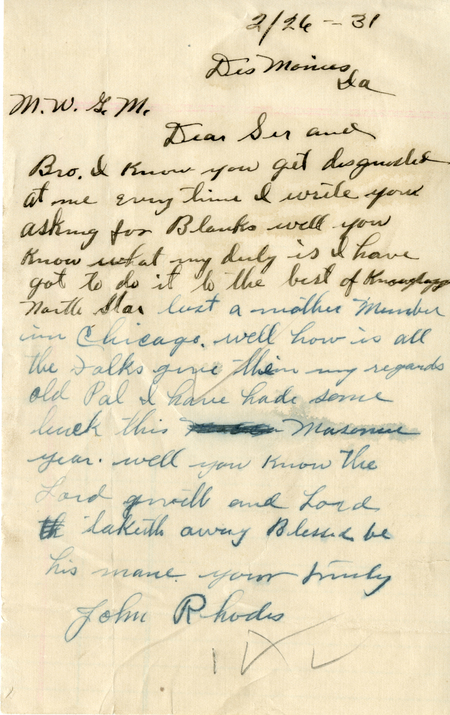 2/26 - 31
Des Moines
Ia
M. W. G. M.
Dear Ser and
Bro. I Know you get disgusted
at me every time I write you
asking for Blanks well you
Know what my duty is I have
got to do it to the best of
North Star lost a mother Member
inn Chicago. well how is all
the Folks give them my regards
old Pal I have hade some
luck this Masonic
year. well you Know the
Lord giveth and Lord
taketh away Blessed be
his mane. your truely
John Rhodes